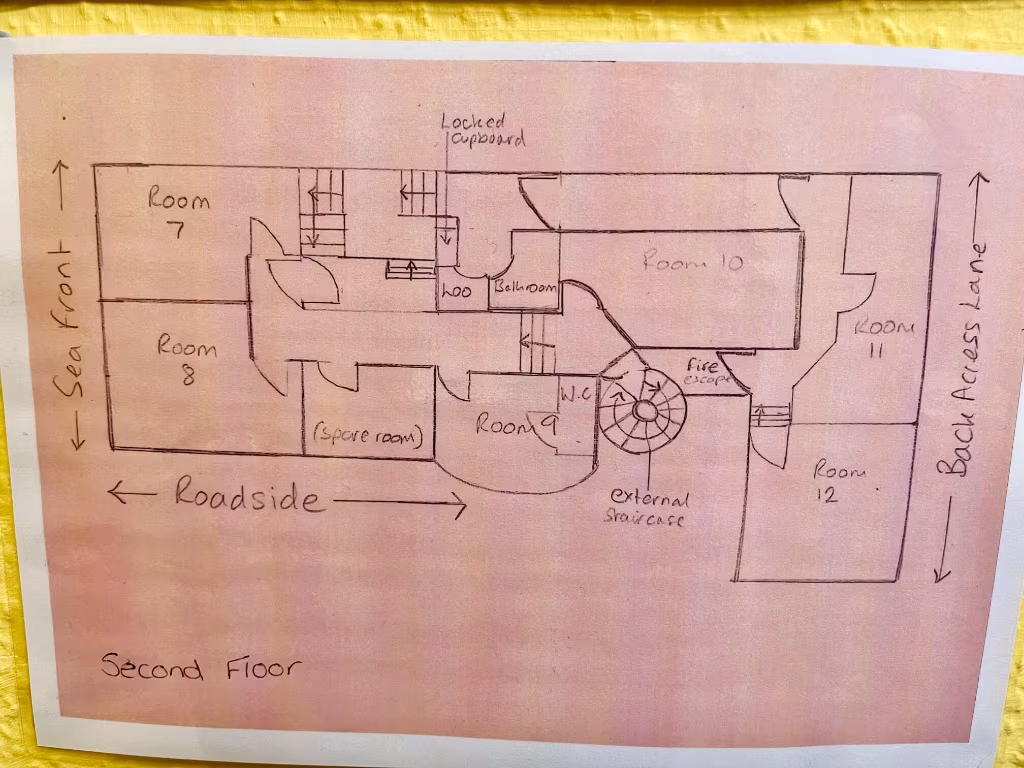 Locked
cupboard
Room
7
Sea Front
Loo
Bathroom
Room 10
Room
8
Fire
escape
Room
11
Back Access Lane
W.C
Room 9
(spare room)
Room
12
Roadside
external
staircase
Second Floor